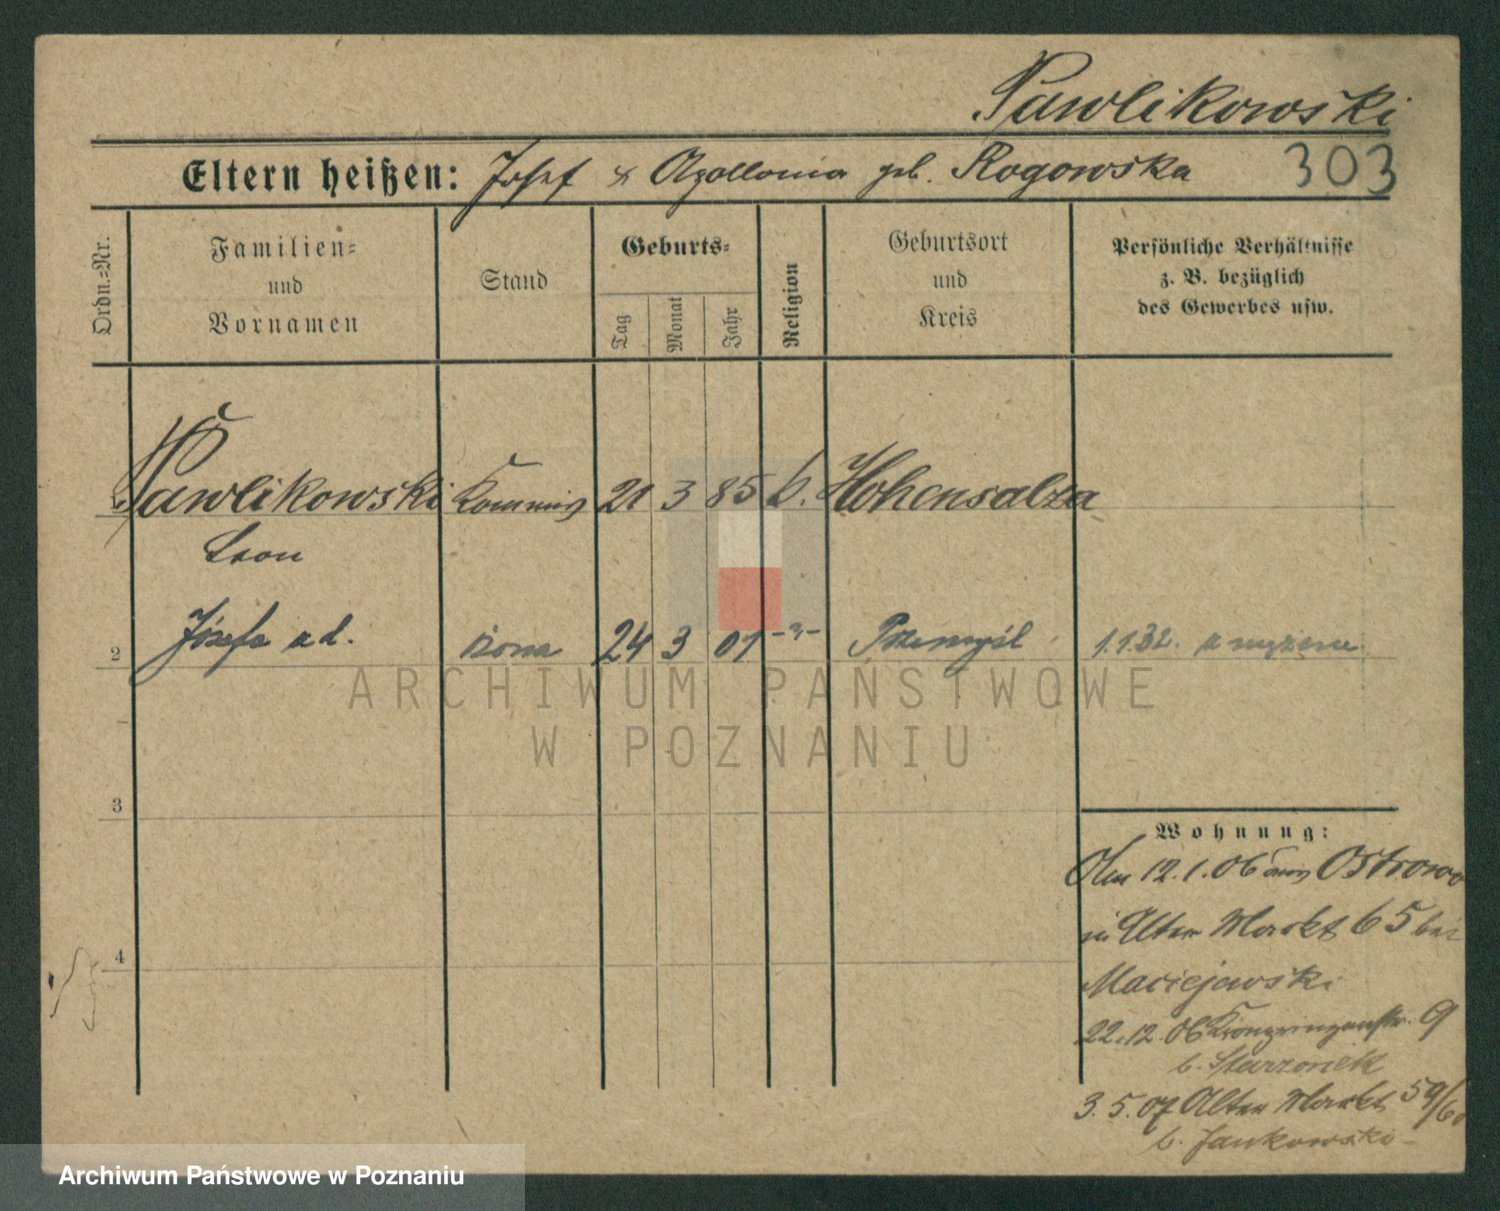 Pawlikowski
Eltern heißen: Josef & Apollonia geb. Rogowska 303
Ordn.-Nr.
Familien-
und
Vornamen
Stand
Geburts-
Tag
Monat
Jahr
Religion
Geburtsort
und
Kreis
Persönliche Verhältnisse
z. B. bezüglich
des Gewerbes usw.
1 Pawlikowski Kommis 21 3 85 k. Hohensalza
Leon
2 Józefa z d. żona 24 3 01 -"- Przemyśl 1.1.32. z mężem
3
4
Wohnung:
Am 12.1.06 aus Ostrowo
in Alter Markt 65 bei
Maciejewski
22.12.06 Kronprinzenstr. 9
b. Starzonek
3.5.07 Alter Markt 59/60
b. Jankowski
ARCHIWUM PAŃSTWOWE
W POZNANIU
Archiwum Państwowe w Poznaniu